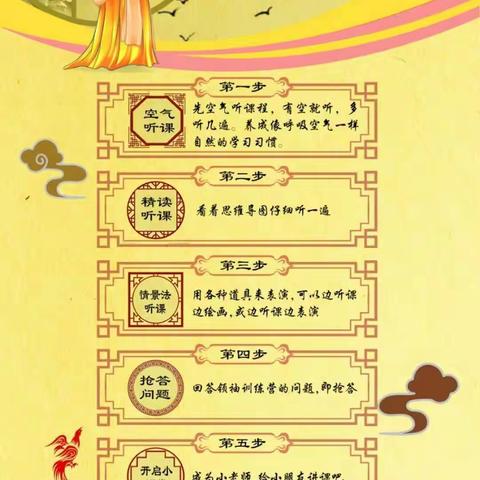 第一步
空气
听课
先空气听课程，有空就听，多
听几遍。养成像呼吸空气一样
自然的学习习惯。
第二步
精读
听课
看着思维导图仔细听一遍
第三步
情景法
听课
用各种道具来表演，可以边听课
边绘画，或边听课边表演
第四步
抢答
问题
回答领袖训练营的问题，即抢答
第五步
开启小
成为小老师，给小朋友讲课吧